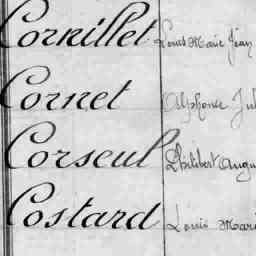 Cornillet Louis Marie Jean
Cornet Alphonse Jul
Corseul Philibert Augu
Costard Louis Mari